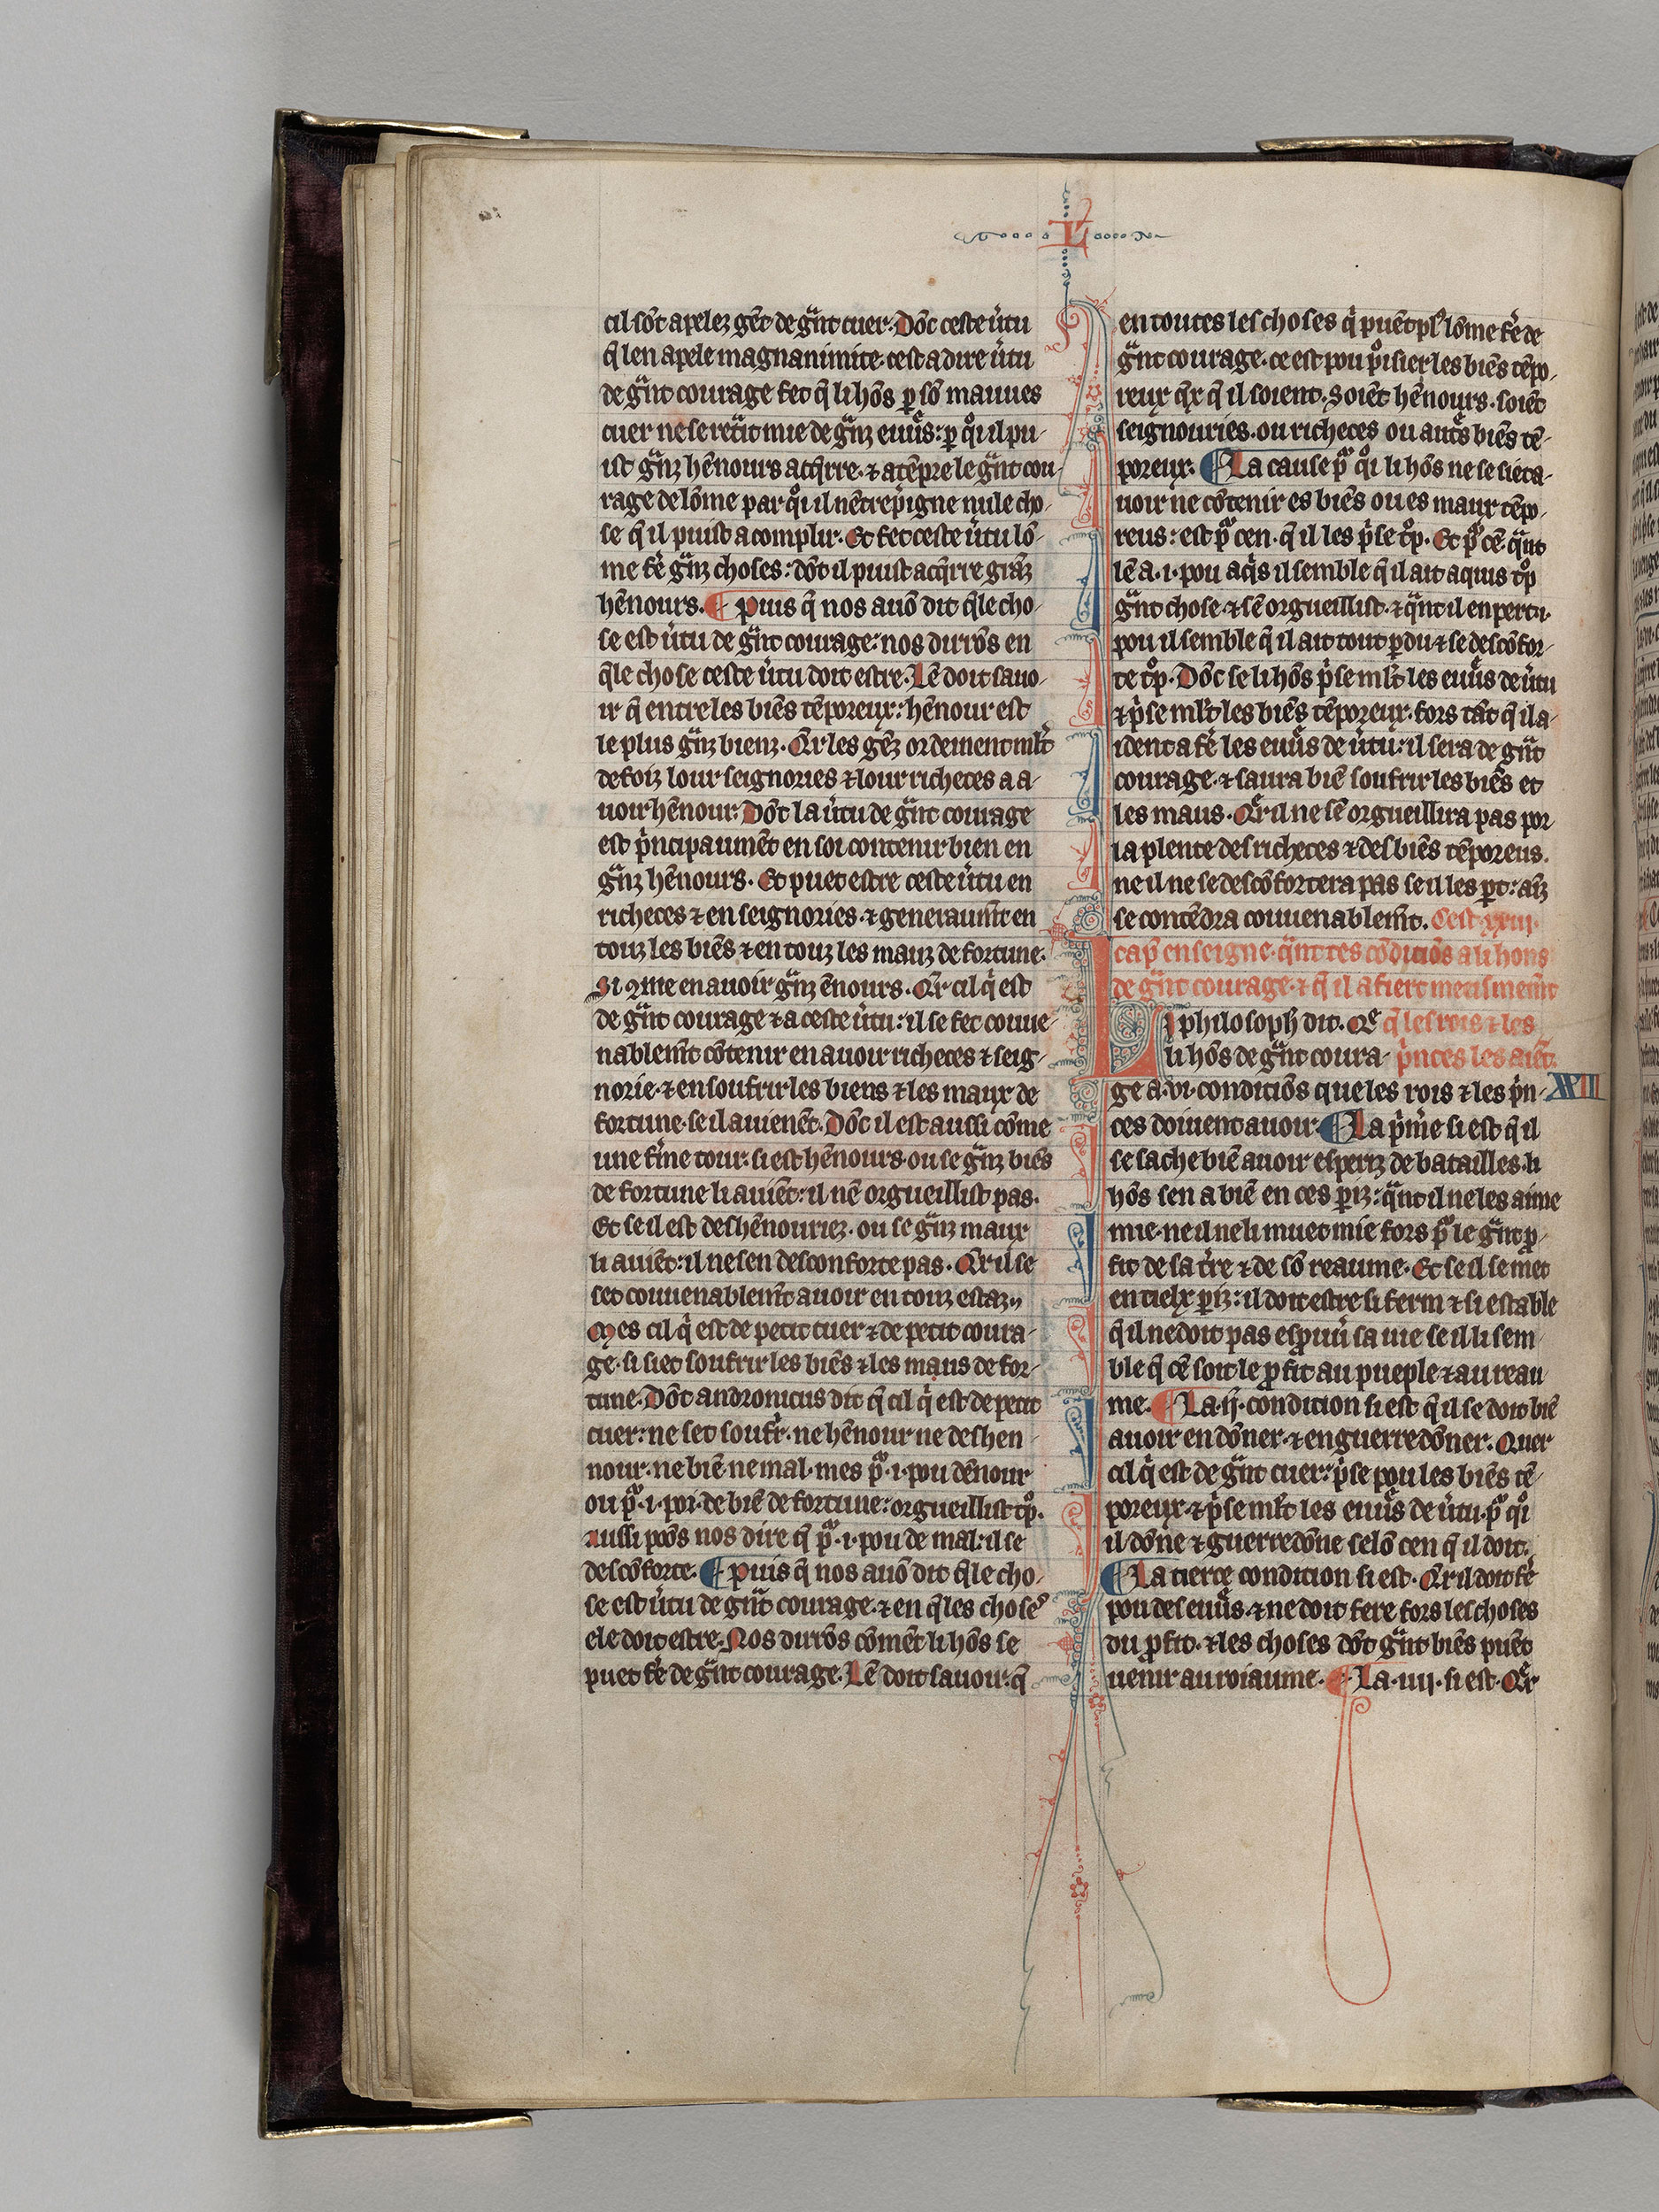 L
cil sõt apelez gẽt de gͣnt cuer. Dõc ceste ũtu
q̃ len apele magnanimite. cest a dire ũtu
de gͣnt courage fet q̃ li hõs ꝑ sõ mauues
cuer ne se retͣit mie de gͣnz euũs: ꝑ qͦi il pu-
ist gͣnz hẽnours acq̃rre. ⁊ atẽpre le gͣnt cou-
rage de lõme par qͦi il nẽtrep̾igne nule cho-
se q̃ il puist acomplir. Et fet ceste ũtu lõ-
me fẽ gͣnz choses: dõt il puist acq̃rre grãz
hẽnours. ¶ Puis q̃ nos auõ dit q̃le cho-
se est ũtu de gͣnt courage: nos dirõs en
q̃le chose ceste ũtu doit estre. Lẽ doit sauo-
ir q̃ entre les biẽs tẽporeux: hẽnour est
le plus gͣnz bienz. Qͣr les gẽz ordement mlt̃
de foiz lour seignories ⁊ lour richeces a a-
uoir hẽnour. Dõt la ũtu de gͣnt courage
est p̾ncipaumẽt en soi contenir bien en
gͣnz hẽnours. Et puet estre ceste ũtu en
richeces ⁊ en seignories. ⁊ generaumẽt en
touz les biẽs ⁊ en touz les mauz de fortune.
Si ꝯme en auoir gͣnz ẽnours. Qͣr cil q̾ est
de gͣnt courage ⁊ a ceste ũtu: il se fet couue-
nablemẽt cõtenir en auoir richeces ⁊ seig-
norie. ⁊ en soufrir les biens ⁊ les maux de
fortune. se il auienẽt. Dõc il est aussi cõme
une fẽme tour. si est hẽnours. ou se gͣnz biẽs
de fortune li auiẽt: il nẽ orgueillist pas.
Et se il est deshẽnouriez. ou se gͣnz maux
li auiẽt: il ne sen desconforte pas. Qͣr il se
set couuenablemẽt auoir en touz estaz.
Mes cil q̾ est de petit cuer ⁊ de petit coura-
ge. si siet soufrir les biẽs ⁊ les maus de for-
tune. Dõt andronicus dit q̃ cil q̾ est de petit
cuer: ne set soufr̃. ne hẽnour ne deshen-
nour. ne biẽ ne mal. mes pͦ .i. pou dẽnour
ou pͦ .i. poi de biẽ de fortune: orgueillist tͦp.
Aussi poõs nos dire q̃ pͦ .i. pou de mal: il se
descõforte. ¶ Puis q̃ nos auõ dit q̃le cho-
se est ũtu de gͣnt courage. ⁊ en q̃les choses
ele doit estre. Nos dirõs cõmẽt li hõs se
puet fẽ de gͣnt courage. Lẽ doit sauoir. q̃
en toutes les choses q̾ puẽt pl᷒ lõme fẽ de
gͣnt courage. ce est pou p̾isier les biẽs tẽpo-
reux q̃x q̃ il soient. Soiẽt hẽnours. soiẽt
seignouries. ou richeces ou autͤs biẽs tẽ-
poreux. ¶ La cause pͦ qͦi li hõs ne se siet a-
uoir ne cõtenir es biẽs ou es maux tẽpo-
reus: est pͦ cen. q̃ il les p̾se tͦp. Et pͦ cẽ. qͣnt
lẽ a .i. pou aq̾s il semble q̃ il ait aquis tͦp
gͣnt chose. ⁊ sẽ orgueillist. ⁊ qͣnt il en pert .i.
pou il semble q̃ il ait tout ꝑdu ⁊ se descõfor-
te tͦp. Dõc se li hõs p̾se mlt̃ les euũs de ũtu
⁊ p̾se mlt̃ les biẽs tẽporeux. fors tãt q̃ il a-
ident a fẽ les euũs de ũtu: il sera de gͣnt
courage. ⁊ saura biẽ soufrir les biẽs et
les maus. Qͣr il ne sẽ orgueillira pas por
la plente des richeces ⁊ des biẽs tẽporeus.
ne il ne se descõfortera pas se il les ꝑt: aĩz
se contẽdra couuenablemẽt. Cest .xxiii.
cap̾ enseigne. qͣntes cõdiciõs a li hons
de gͣnt courage. ⁊ q̃ il afiert meismemẽt
q̃ les rois ⁊ les
p̾nces les aiẽt.
Li philosoph dit. Qͤ
li hõs de gͣnt coura-
ge a .vi. condiciõs que les rois ⁊ les p̾n-
XXIII
ces doiuent auoir. ¶ La p̾m̾e si est q̃ il
se sache biẽ auoir es periz de batailles. li
hõs sen a biẽ en ces ꝑiz: qͣnt il ne les aime
mie. ne il ne li muet mie fors pͦ le gͣnt ꝓ-
fit de sa tr̃e ⁊ de sõ reaume. Et se il se met
en tielx ꝑiz: il doit estre si ferm ⁊ si estable
q̃ il ne doit pas espuiũ sa uie se il li sem-
ble q̃ cẽ soit le ꝓfit au pueple ⁊ au reau
me. ¶ La .ij. condition si est q̃ il se doit biẽ
auoir en dõner. ⁊ en guerredõner. Quer
cil q̾ est de gͣnt cuer: p̾se pou les biẽs tẽ-
poreux ⁊ p̾se mlt̃ les euũs de ũtu. pͦ qͦi
il dõne ⁊ guerredõne selõ cen q̃ il doit.
¶ La tierce condition si est. Qͣr il doit fẽ
pou des euũs. ⁊ ne doit fere fors les choses
du ꝓfit. ⁊ les choses dõt gͣnt biẽs puẽt
uenir au roiaume. ¶ La .iiij. si est. Qͣr